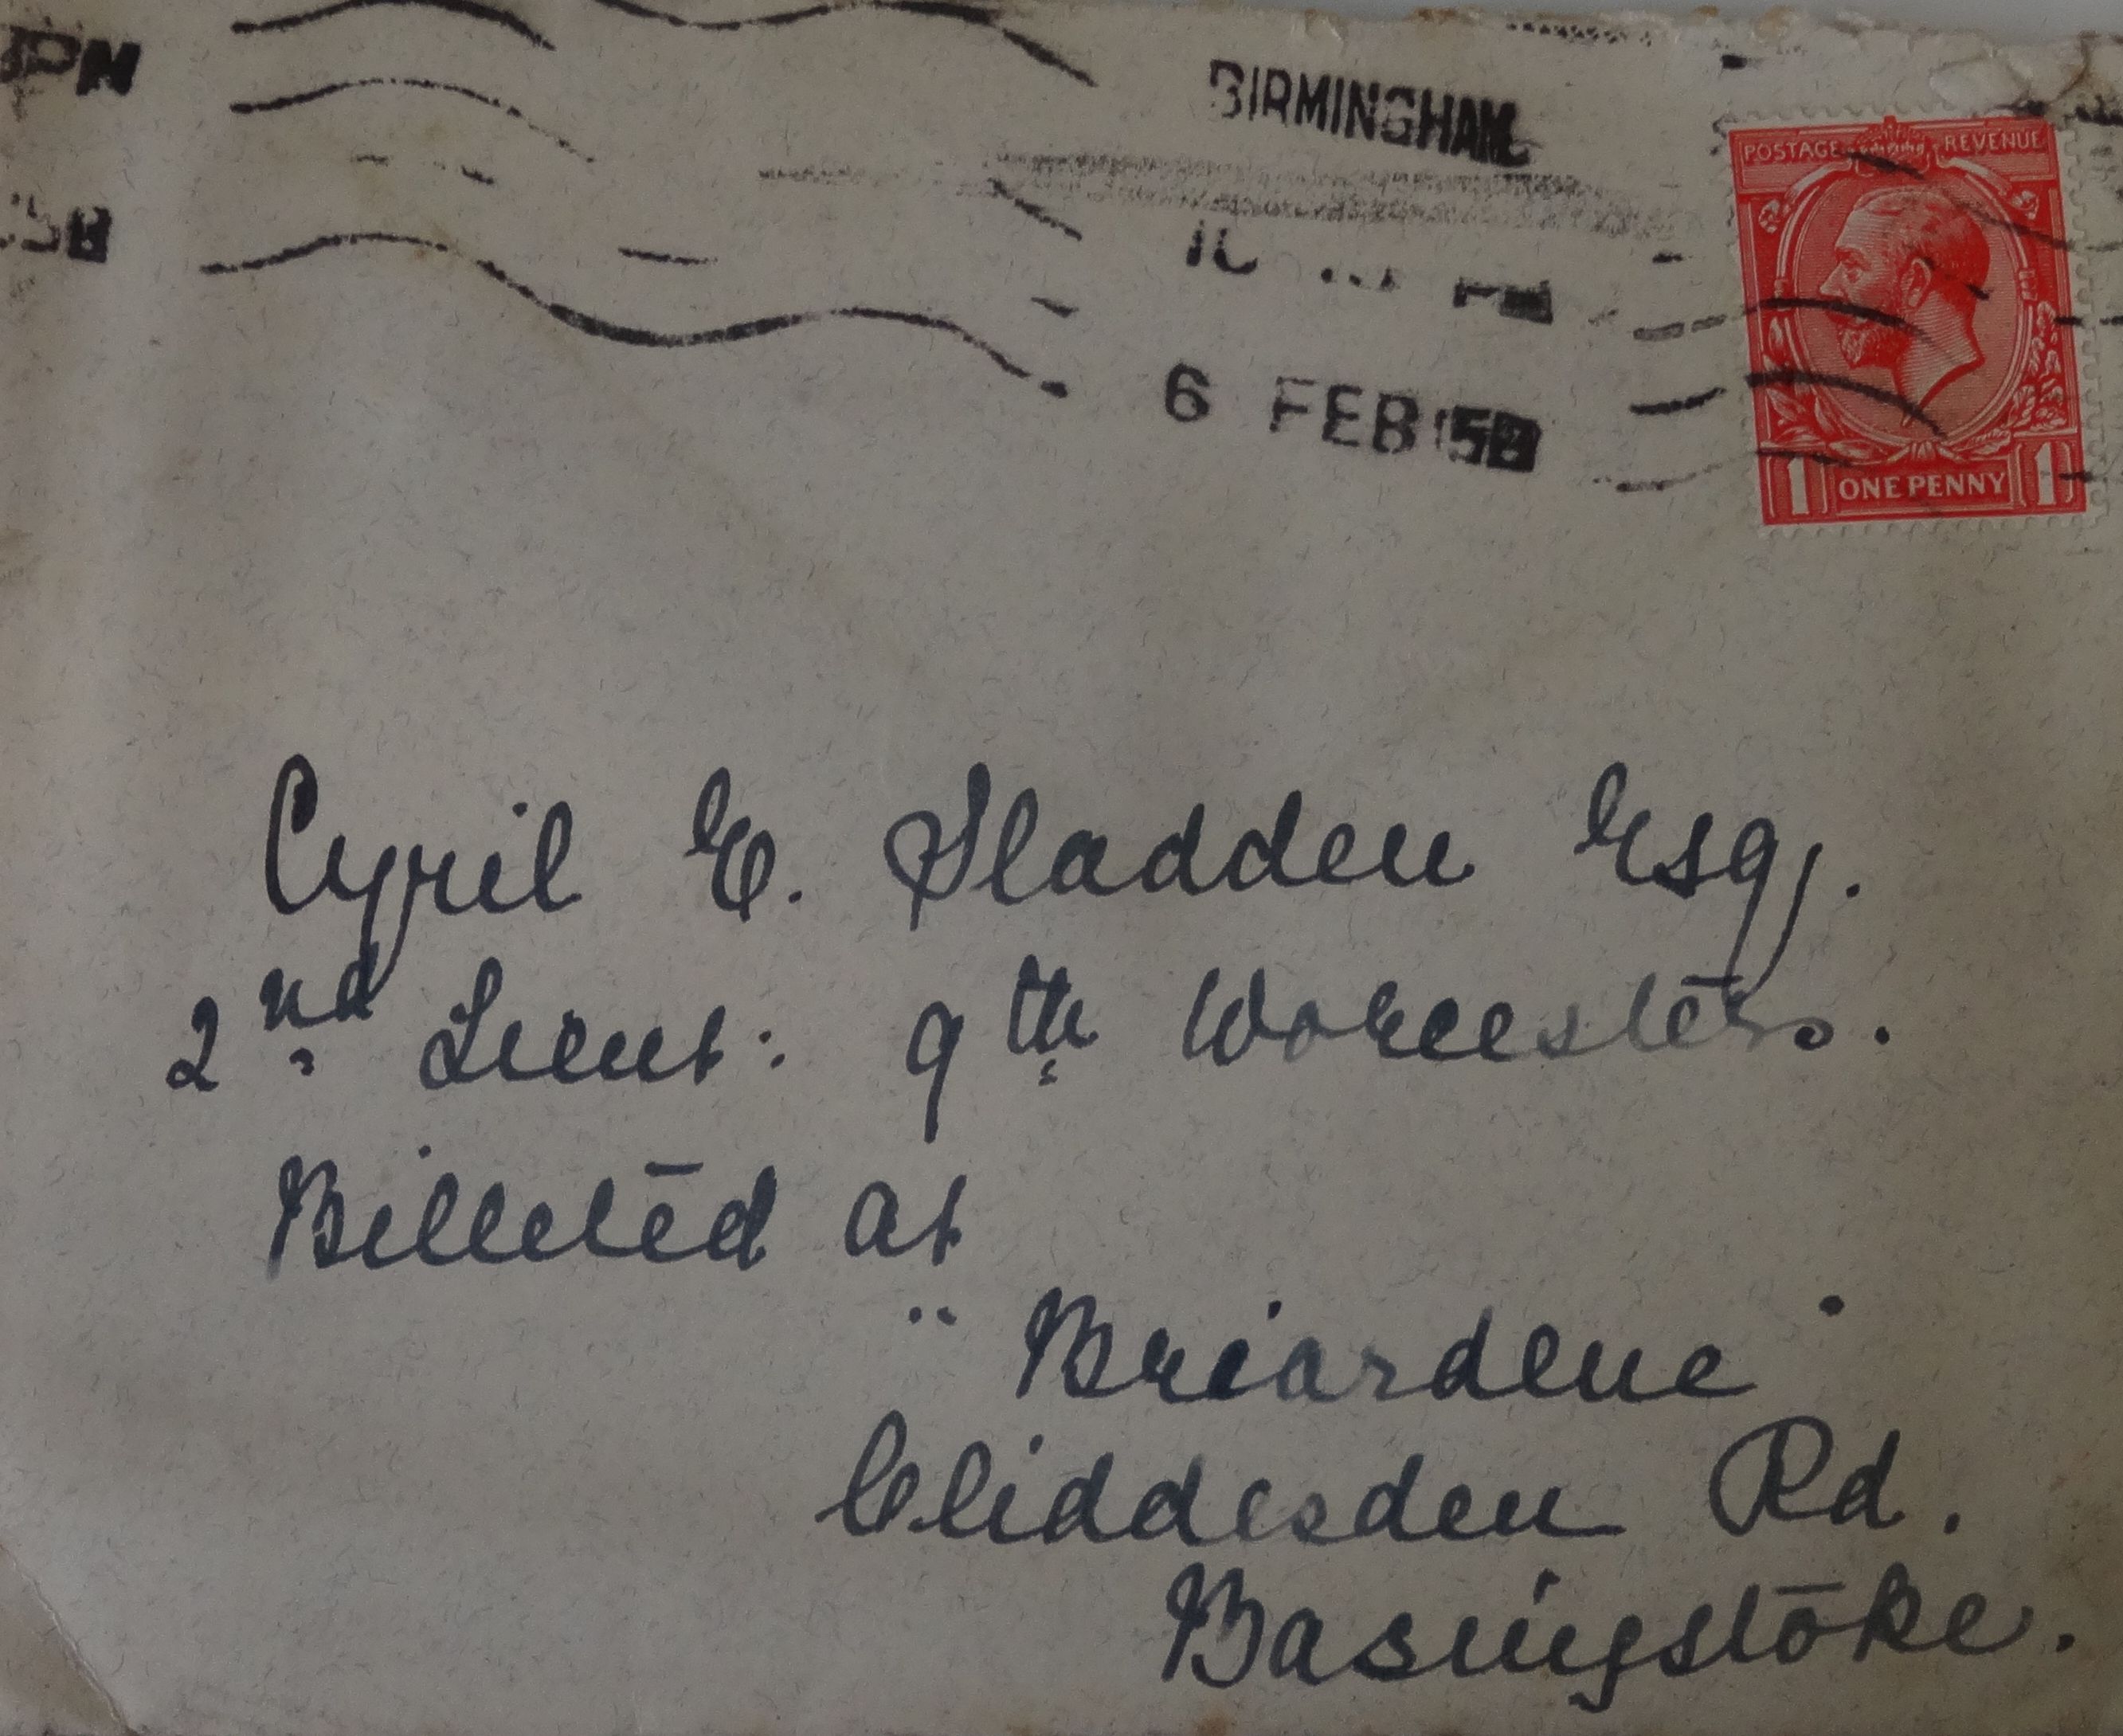 BIRMINGHAM
6 FEB
POSTAGE REVENUE
1 ONE PENNY 1
Cyril E. Sladden Esq.
2nd Lieut: 9th Worcesters.
Billeted at
"Briardene"
Cliddesden Rd.
Basingstoke.